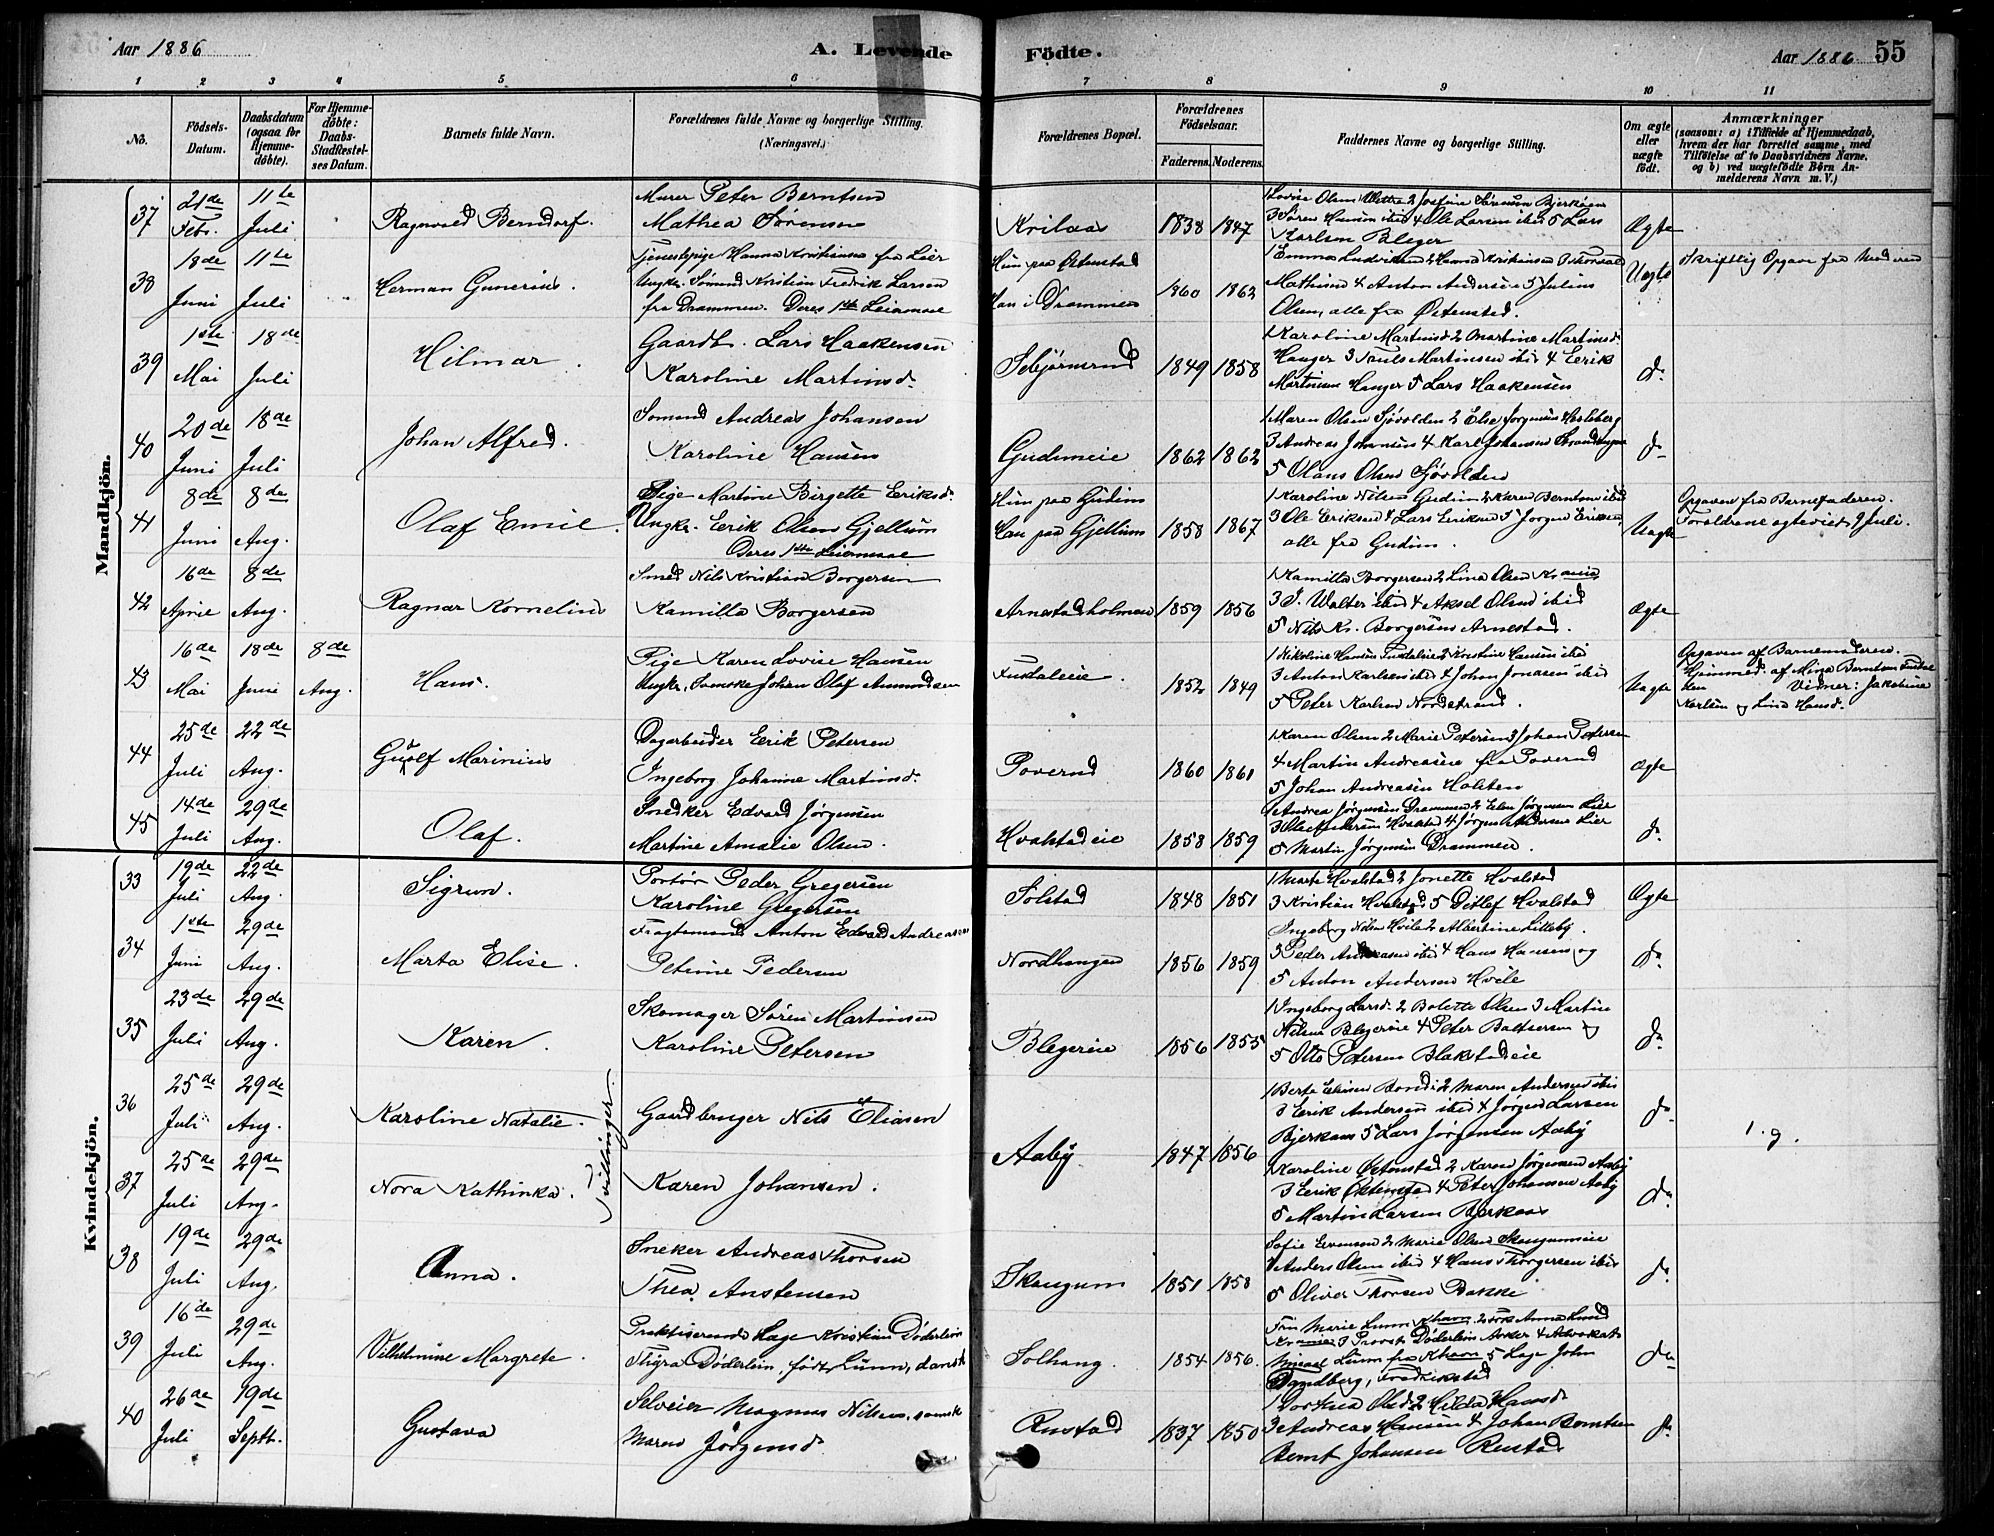 Aar 1886
A. Levende
Födte.
Aar 1886 55
1 2 3 4 5 6 7 8 9 10 11
No.
Födsels-Datum.
Daabsdatum (ogsaa for Hjemmedöbte).
For Hjemmedöbte: Daabs-Stadfestelses Datum.
Barnets fulde Navn.
Forældrenes fulde Navne og borgerlige Stilling. (Næringsvei.)
Forældrenes Bopæl.
Forældrenes Födselsaar.
Faderens. Moderens.
Faddernes Navne og borgerlige Stilling.
Om ægte eller uægte födt.
Anmærkninger
(saasom: a) i Tilfælde af Hjemmedaab, hvem der har forrettet samme, med Tilföielse af to Daabsvidners Navne, og b) ved uægtefödte Börn Anmelderens Navn m. V.)
Mandkjön.
37 21de Febr. 11te Juli
Ragnvald Berndorf.
Murer Peter Berntsen
Mathea Sørensen
1838 1847
3 Søren Hansen ibid 4 Ole Larsen ibid 5 Lars
Karlsen Bleger
Ægte
38 18de Juni 11te Juli
Herman Gunerius.
Tjenestepige Hanna Kristiansen fra Lier
Ungkr. Sømand Kristian Fredrik Larsen
fra Drammen. Deres 1ste Leiermaal
Hun paa Østenstad
Han i Drammen
1860 1862
Mathisen 4 Anton Andersen 5 Julius
Olsen, alle fra Østensted.
Uægte
Skriftlig Opgave fra Moderen
39 1ste Mai 18de Juli
Hilmar.
Gaardb. Lars Haakensen
Karoline Martinsd.
Sebjørnsrud
1849 1858
1 Karoline Martinsd 2 Martine Martinsd.
Hanger 3 Pauls Martinsen ibid 4 Eerik
Martinsen Hanger 5 Lars Haakensen
do
40 20de Juni 18de Juli
Johan Alfred.
Sømand Andreas Johansen
Karoline Hansen
Gudimeie
1862 1862
1 Maren Olsen Sjøvolden 2 Else Jorgensen
3 Andreas Johansen 4 Karl Johansen
5 Olaus Olsen Sjøvolden
do
41 8de Juni 8de Aug.
Olaf Emil.
Pige Martine Birgette Eriksd.
Ungkr. Eerik Olsen Gjellum
Deres 1ste Leiermaal
Hun paa Gudim
Han paa Gjellum
1858 1867
1 Karoline Nilsen Gudim 2 Karen Berntsen ibid
3 Ole Eriksen 4 Lars Eriksen 5 Jørgen Eriksen
alle fra Gudim.
Uægte
Opgaven fra Barnefaderen.
Forældrene ægteviet 9 Juli.
42 16de April 8de Aug.
Ragnar Kornelius
Smed Nils Kristian Borgersen
Kamilla Borgersen
Arnestadholmen
1859 1856
1 Kamilla Borgersen 2 Lina Olsen Kr.ania
3 J. Walter ibid 4 Aksel Olsen ibid
5 Nils Kr. Borgersen Arnestad.
Ægte
43 16de Mai 18de Juni 8de Aug.
Hans.
Pige Karen Lovise Hansen
Ungkr. Svenske Johan Olaf Amundsen
1852 1849
3 Anton Karlsen ibid 4 Johan Jonasen ibid
5 Peter Karlsen Nordstrand.
Uægte
Opgaven af Barnemoderen.
Hjemmed. af Mina Berntsen
Vidner: Jakobine
Karlsen og Lina Hansd.
44 25de Juli 22de Aug.
Gudolf Marinius
Dagarbeider Eerik Petersen
Ingeborg Johanne Martinsd.
Poverud
1860 1861
1 Karen Olsen 2 Marie Petersen 3 Johan Petersen
4 Martin Andreasen fra Poverud
5 Johan Andreasen Holsten
Ægte
45 14de Juli 29de Aug.
Olaf.
Snedker Edvard Jørgensen
Martine Amalie Olsen.
Hvalstadeie
1858 1859
1 Andrea Jørgensen Drammen 2 Elen Jørgensen Lier
3 Ole Andersen Hvalstad 4 Jørgen Andersen Lier
5 Martin Jørgensen Drammen.
do
Kvindekjön.
33 19de Juli 22de Aug.
Sigrun.
Portør Peder Gregersen
Karoline Gregersen
Solstad
1848 1851
1 Marte Hvalstad 2 Jonette Hvalstad
3 Kristian Hvalstad 5 Ditlef Hvalstad
Ægte
34 1ste Juni 29de Aug.
Marta Elise.
Fragtemand Anton Edvard Andreasen
Petrine Pedersen
Nordhengen
1856 1859
Ingeborg Nilsen Hvile 2 Albertine Lilleby.
3 Peder Andersen ibid 4 Hans Hansen og
5 Anton Andersen Hvile
do
35 23de Juli 29de Aug.
Karen.
Skomager Søren Martinsen
Karoline Petersen
Blegereie
1856 1855
1 Ingeborg Larsd. 2 Bolette Olsen 3 Martin
Nilsen Blegereie 4 Peter Baltsersen og
5 Otto Petersen Blakstadeie
do
36 25de Juli 29de Aug.
Karoline Natalie.
Tvillinger.
Gaardbruger Nils Eliasen
Aaby
1847 1856
1 Berte Eliasen Bondi 2 Maren Andersen ibid
3 Eerik Andersen ibid 4 Jørgen Larsen
Bjerkaas 5 Lars Jørgensen Aaby
do
1. g.
37 25de Juli 29de Aug.
Nora Kathinka.
Karen Johansen.
1 Karoline Østenstad 2 Karen Jørgensen Aaby
3 Eerik Østenstad 4 Peter Johansen Aaby
5 Martin Larsen Bjerkaas
do
38 19de Juli 29de Aug.
Anna.
Sneker Andreas Thorsen
Thea Anstensen
Skaugum
1851 1858
Sofie Evensen 2 Marie Olsen Skaugumeie
3 Anders Olsen ibid 4 Hans Thorgersen ibid
5 Oliver Thorsen Bakke
do
39 16de Juli 29de Aug.
Vilhelmine Margrete.
Praktiserende Læge Kristian Døderlein
Thyra Døderlein, født Lunn, dansk
Solhaug.
1854 1856.
Frue Marie Lunn, Khavn 2 Frk Anna Lund
Krania 3 Provst Døderlein Asker 4 Advokat
Lunn fra Khavn 5 Læge John
Tandberg, Fredrikstad
do
40 26de Juli 19de Septb.
Gustava
Selveier Magnus Nilsen, svensk
Maren Jörgensd.
Rustad
1837 1850
1 Dorthea Olsd 2 Hilda Hansd
3 Andreas Hansen 4 Johan Berntsen
Bernt Johansen Rustad
do